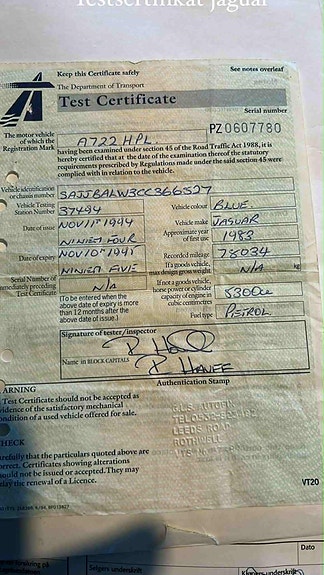 Testsertifikat jaguar
Keep this Certificate safely
See notes overleaf
The Department of Transport
Test Certificate
Serial number
PZ 0607780
The motor vehicle
of which the
Registration Mark
A722 HPL
having been examined under section 45 of the Road Traffic Act 1988, it is
hereby certified that at the date of the examination thereof the statutory
requirements prescribed by Regulations made under the said section 45 were
complied with in relation to the vehicle.
Vehicle identification
or chassis number
SAJJBALW3CC366527
Vehicle Testing
Station Number
37494
Vehicle colour
BLUE
Date of issue
NOV 11TH 1994
NINETY FOUR
Vehicle make
JAGUAR
Approximate year
of first use
1983
Date of expiry
NOV 10TH 1995
NINETY FIVE
Recorded mileage
78034
If a goods vehicle,
max design gross weight
N/A
kg
Serial Number of
immediately preceding
Test Certificate
N/A
(To be entered when
the above date of expiry is more
than 12 months after the
above date of issue.)
If not a goods vehicle,
horse power or cylinder
capacity of engine in
cubic centimetres
5300cc
Fuel type
PETROL
Signature of tester/inspector
Name in BLOCK CAPITALS
Authentication Stamp
ARNING
Test Certificate should not be accepted as
idence of the satisfactory mechanical
ndition of a used vehicle offered for sale.
LEEDS ROAD
ROTHWELL
HECK
arefully that the particulars quoted above are
rrect. Certificates showing alterations
ould not be issued or accepted. They may
lay the renewal of a Licence.
VT20
Dato
Selgers underskrift
Kjøpers underskrift